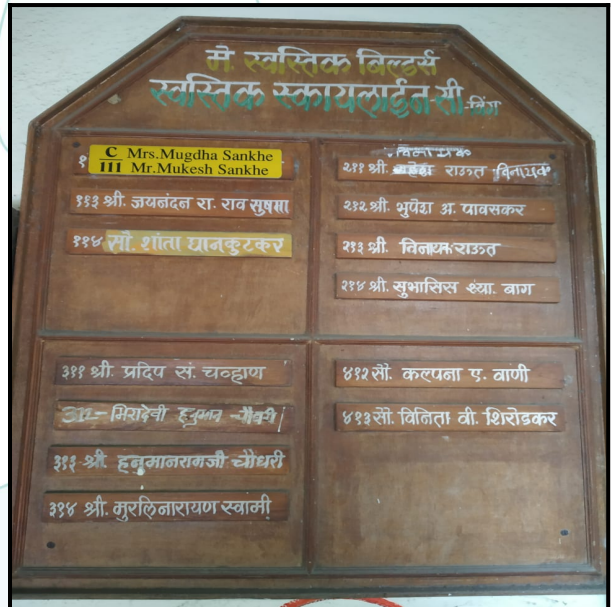 मे. स्वस्तिक बिल्डर्स
स्वस्तिक स्कायलाईन सी-विंग
C/III Mrs.Mugdha Sankhe
Mr.Mukesh Sankhe
११३ श्री. जयनंदन रा. राव सुषमा
११४ सौ. शांता घानकुटकर
विनायक
२११ श्री. राऊत विनायक
२१२ श्री. भुपेश अ. पावसकर
२१३ श्री. विनायक राऊत
२१४ श्री. सुभासिस श्या. बाग
३११ श्री. प्रदिप सं. चव्हाण
मिरादेवी हनुमान चौधरी
३१३ श्री. हनुमानरामजी चौधरी
३१४ श्री. मुरलिनारायण स्वामी
४१२ सौ. कल्पना ए. वाणी
४१३ सौ. विनिता वी. शिरोडकर